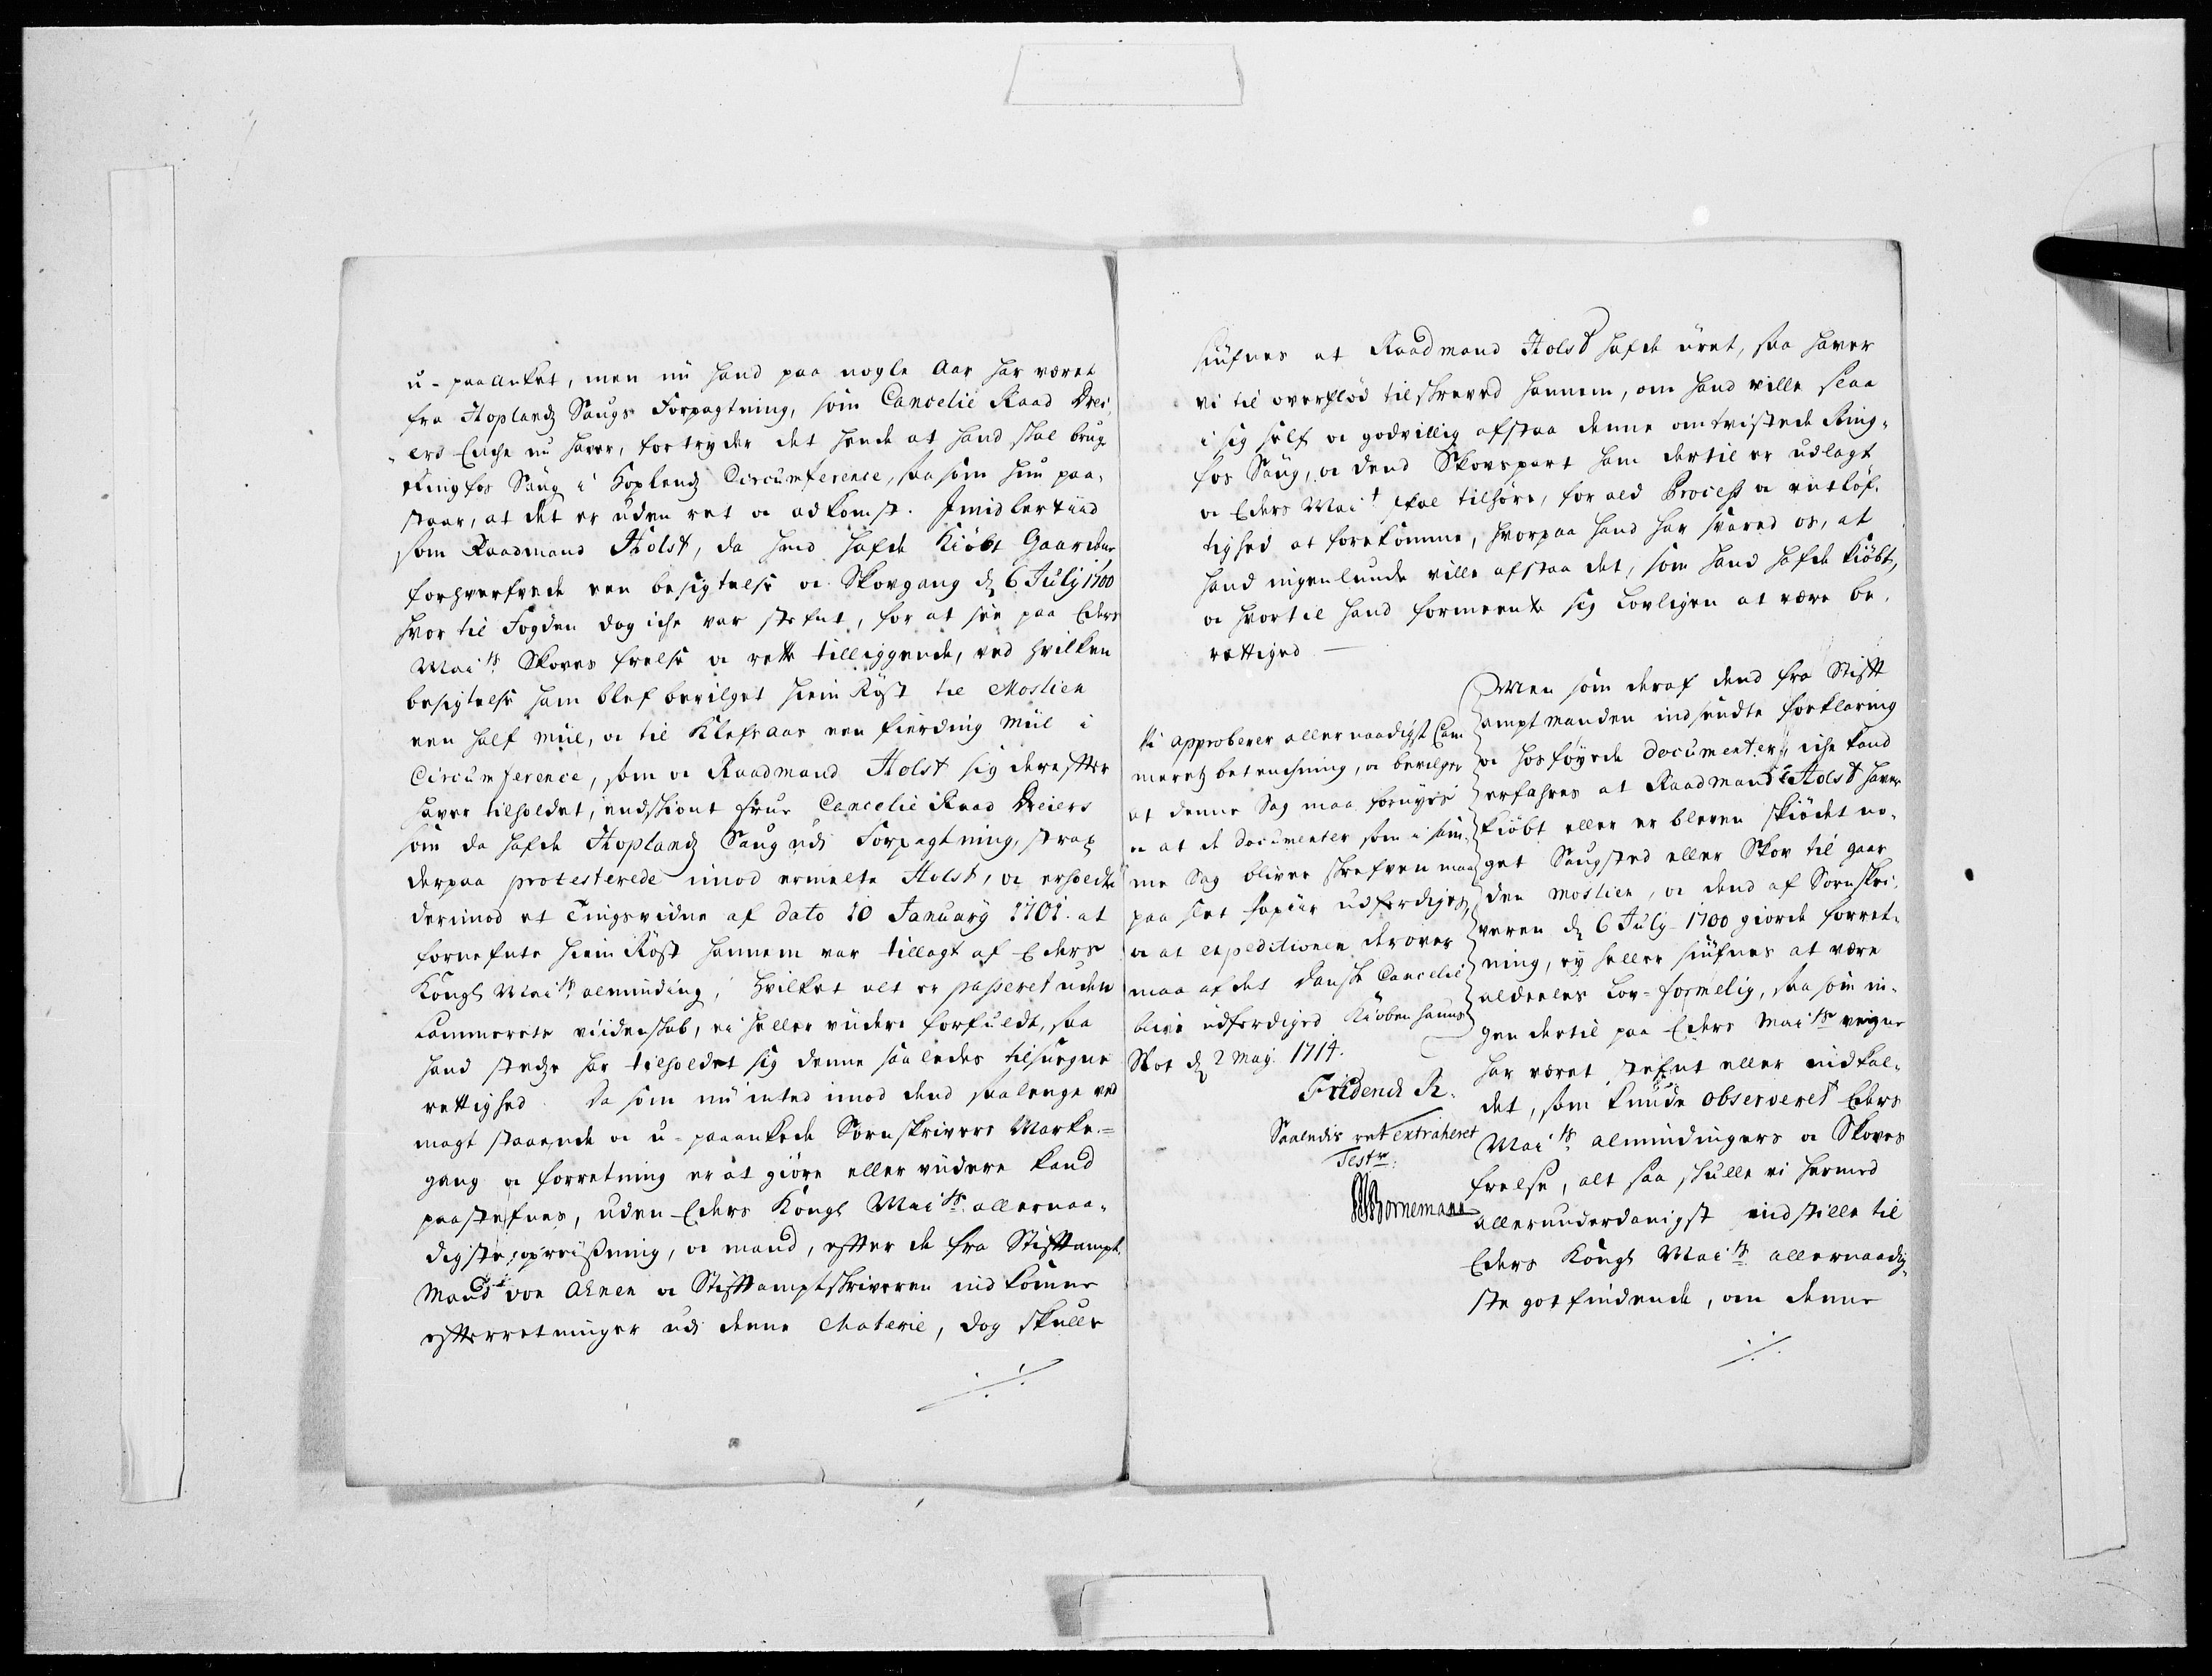 u-paaanket, men nu hand paa nogle Aar har været
fra Hoplandz Saugs Forpagtning, som Cancelie Raad Drei,
ers Encke nu haver, fortryder det hende at hand skal brug
Ringfos Saug i Hoplandz Circumference, saasom hun paa-
staar, at det er uden ret oc adkomst. Imidlertiid
som Raadmand Holst, da hand hafde Kiöbt Gaardene
forhverfvede een besigtelse oc Skovgang dη 6 July 1700
hvor til Fogden dog iche var stefnt, for at see paa Eders
Maiᵗˢ Skoves frelse oc rette tilliggende, ved hvilken
besigtelse ham blef bevilget hiem Røst til Moslien
een half miil, oc til Klefraar een fierding miil i
Circumference, som oc Raadmand Holst sig derefter
haver tilholdet, endskiönt frue Cancelie Raad Dreiers
som da hafde Hoplandz Saug udi Forpagtning, strax
derpaa protesterede imod ermelte Holst, oc erholdte
derimod et Tingsvidne af dato 10 January 1701. at
fornefnte hiem Røst hannem var tillagt af Eders
Kongl Maiᵗˢ alminding, hvilket alt er passeret uden
Cammerets viidenskab, ei heller viidere forfuldt, saa
hand stedze har tilholdet sig denne saaledes tilsuegne
rettighed. Da som nu inted imod dend saalenge ved
magt staaende oc u-paaankede Sornskrivers Marke-
gang oc forretning er at giöre eller viidere kand
paastefnes, uden Eders Kongl Maiᵗˢ allernaa-
digste opreisning, oc mand, efter de fra Stiftampt
Mand von Ahnen oc Stiftamptskriveren indkomne
efterretninger udi denne Materie, dog skulle
siufnes at Raadmand Holst hafde uret, saa haver
vi til overflød tilskreved hannem, om hand ville slaa
i sig self oc godvillig afstaa denne omtvistede Ring-
fos Saug, oc dend Skovspart ham dertil er udlagt
oc Eders Maiᵗ skal tilhöre, for ald Process oc vitløf-
tighed at forekomme, hvorpaa hand har svared os, at
hand ingenlunde ville afstaa det, som hand hafde kiöbt,
oc hvortil hand formeente sig lovligen at være be-
rettiged
Vi approberer allernaadigst Cam
meretz betenchning, oc bevilger
at denne Sag maa fornyes
oc at de documenter som i sam-
me Sag bliver skrefven maa
paa slet papiir udferdiges,
oc at expeditionen derover
maa af det Danske Cancelie
blive udferdiged Kiöbenhauns
Slot dη 2 Maj 1714.
Friderich R.
Saaledis ret extraheret
Test:
Bornemann
Men som deraf dend fra Stift
amptmanden indsendte forklaring
oc hosføyede documenter, iche kand
erfahres at Raadmand Holst haver
kiöbt eller er bleven skiödet no-
get Saugsted eller Skov til gaar
den Moslien, oc dend af Sornskri-
veren dη 6 July 1700 giorde forret-
ning, ey heller siufnes at være
aldeeles Lov-formelig, saasom in-
gen dertil paa Eders Maiᵗˢ veigne
har været stefnt eller indkal-
det, som kunde observeret Eders
Maiᵗˢ almindingers oc Skoves
frelse, alt saa skulle vi hermed
allerunderdanigst indstille til
Eders Kongl Maiᵗˢ allernaadig-
ste gotfindende, om denne